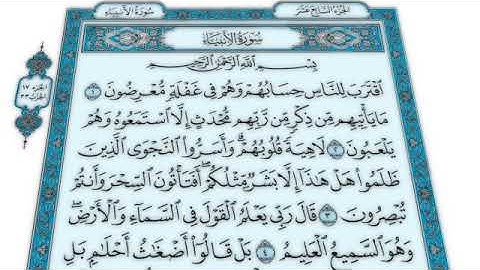 سُورَةُ الأَنبِيَاءِ
الجُزْءُ السَّابِعَ عَشَرَ
سُورَةُ الأَنبِيَاءِ
بِسْمِ اللَّهِ الرَّحْمَٰنِ الرَّحِيمِ
اقْتَرَبَ لِلنَّاسِ حِسَابُهُمْ وَهُمْ فِي غَفْلَةٍ مُّعْرِضُونَ ١
مَا يَأْتِيهِم مِّن ذِكْرٍ مِّن رَّبِّهِم مُّحْدَثٍ إِلَّا اسْتَمَعُوهُ وَهُمْ
يَلْعَبُونَ ٢ لَاهِيَةً قُلُوبُهُمْ ۗ وَأَسَرُّوا النَّجْوَى الَّذِينَ
ظَلَمُوا هَلْ هَٰذَا إِلَّا بَشَرٌ مِّثْلُكُمْ ۖ أَفَتَأْتُونَ السِّحْرَ وَأَنتُمْ
تُبْصِرُونَ ٣ قَالَ رَبِّي يَعْلَمُ الْقَوْلَ فِي السَّمَاءِ وَالْأَرْضِ ۖ
وَهُوَ السَّمِيعُ الْعَلِيمُ ٤ بَلْ قَالُوا أَضْغَاثُ أَحْلَامٍ بَلِ
الجزء ١٧
الحزب ٣٣